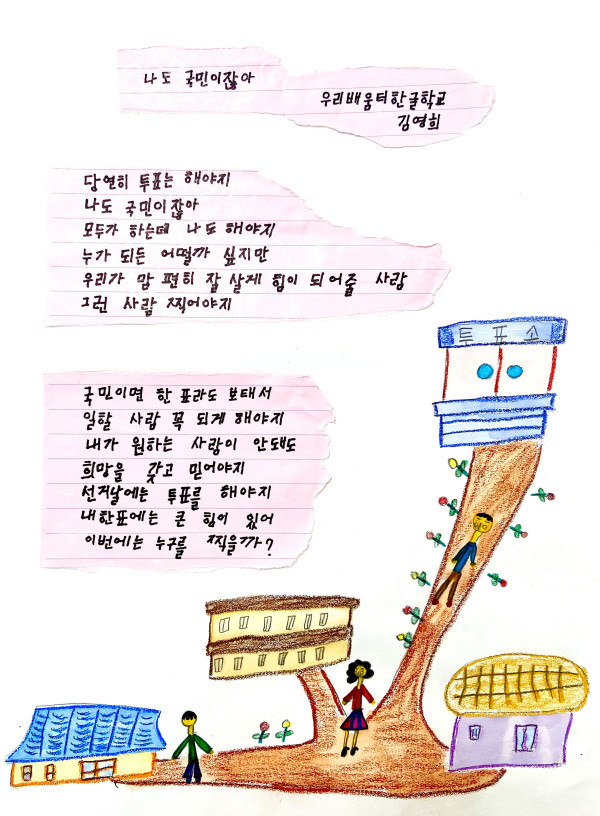 나도 국민이잖아
우리배움터한글학교
김영희
당연히 투표는 해야지
나도 국민이잖아
모두가 하는데 나도 해야지
누가 되든 어떨까 싶지만
우리가 맘 편히 잘 살게 힘이 되어줄 사람
그런 사람 찍어야지
국민이면 한 표라도 보태서
일할 사람 꼭 되게 해야지
내가 원하는 사람이 안돼도
희망을 갖고 믿어야지
선거날에는 투표를 해야지
내한표에는 큰 힘이 있어
이번에는 누구를 찍을까?
투표소